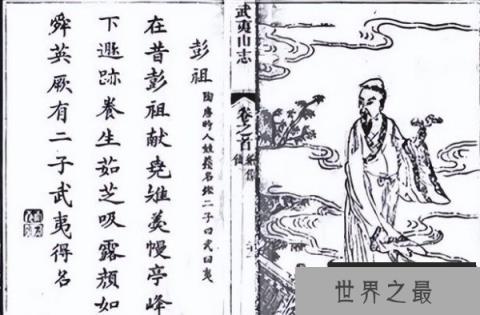 武夷山志
卷之首
彭祖
陶唐時人姓籛名鏗二子曰武曰夷
在昔彭祖献堯雉羹幔亭峰
下遯跡養生茹芝吸露顔如
舜英厥有二子武夷得名
世界之最